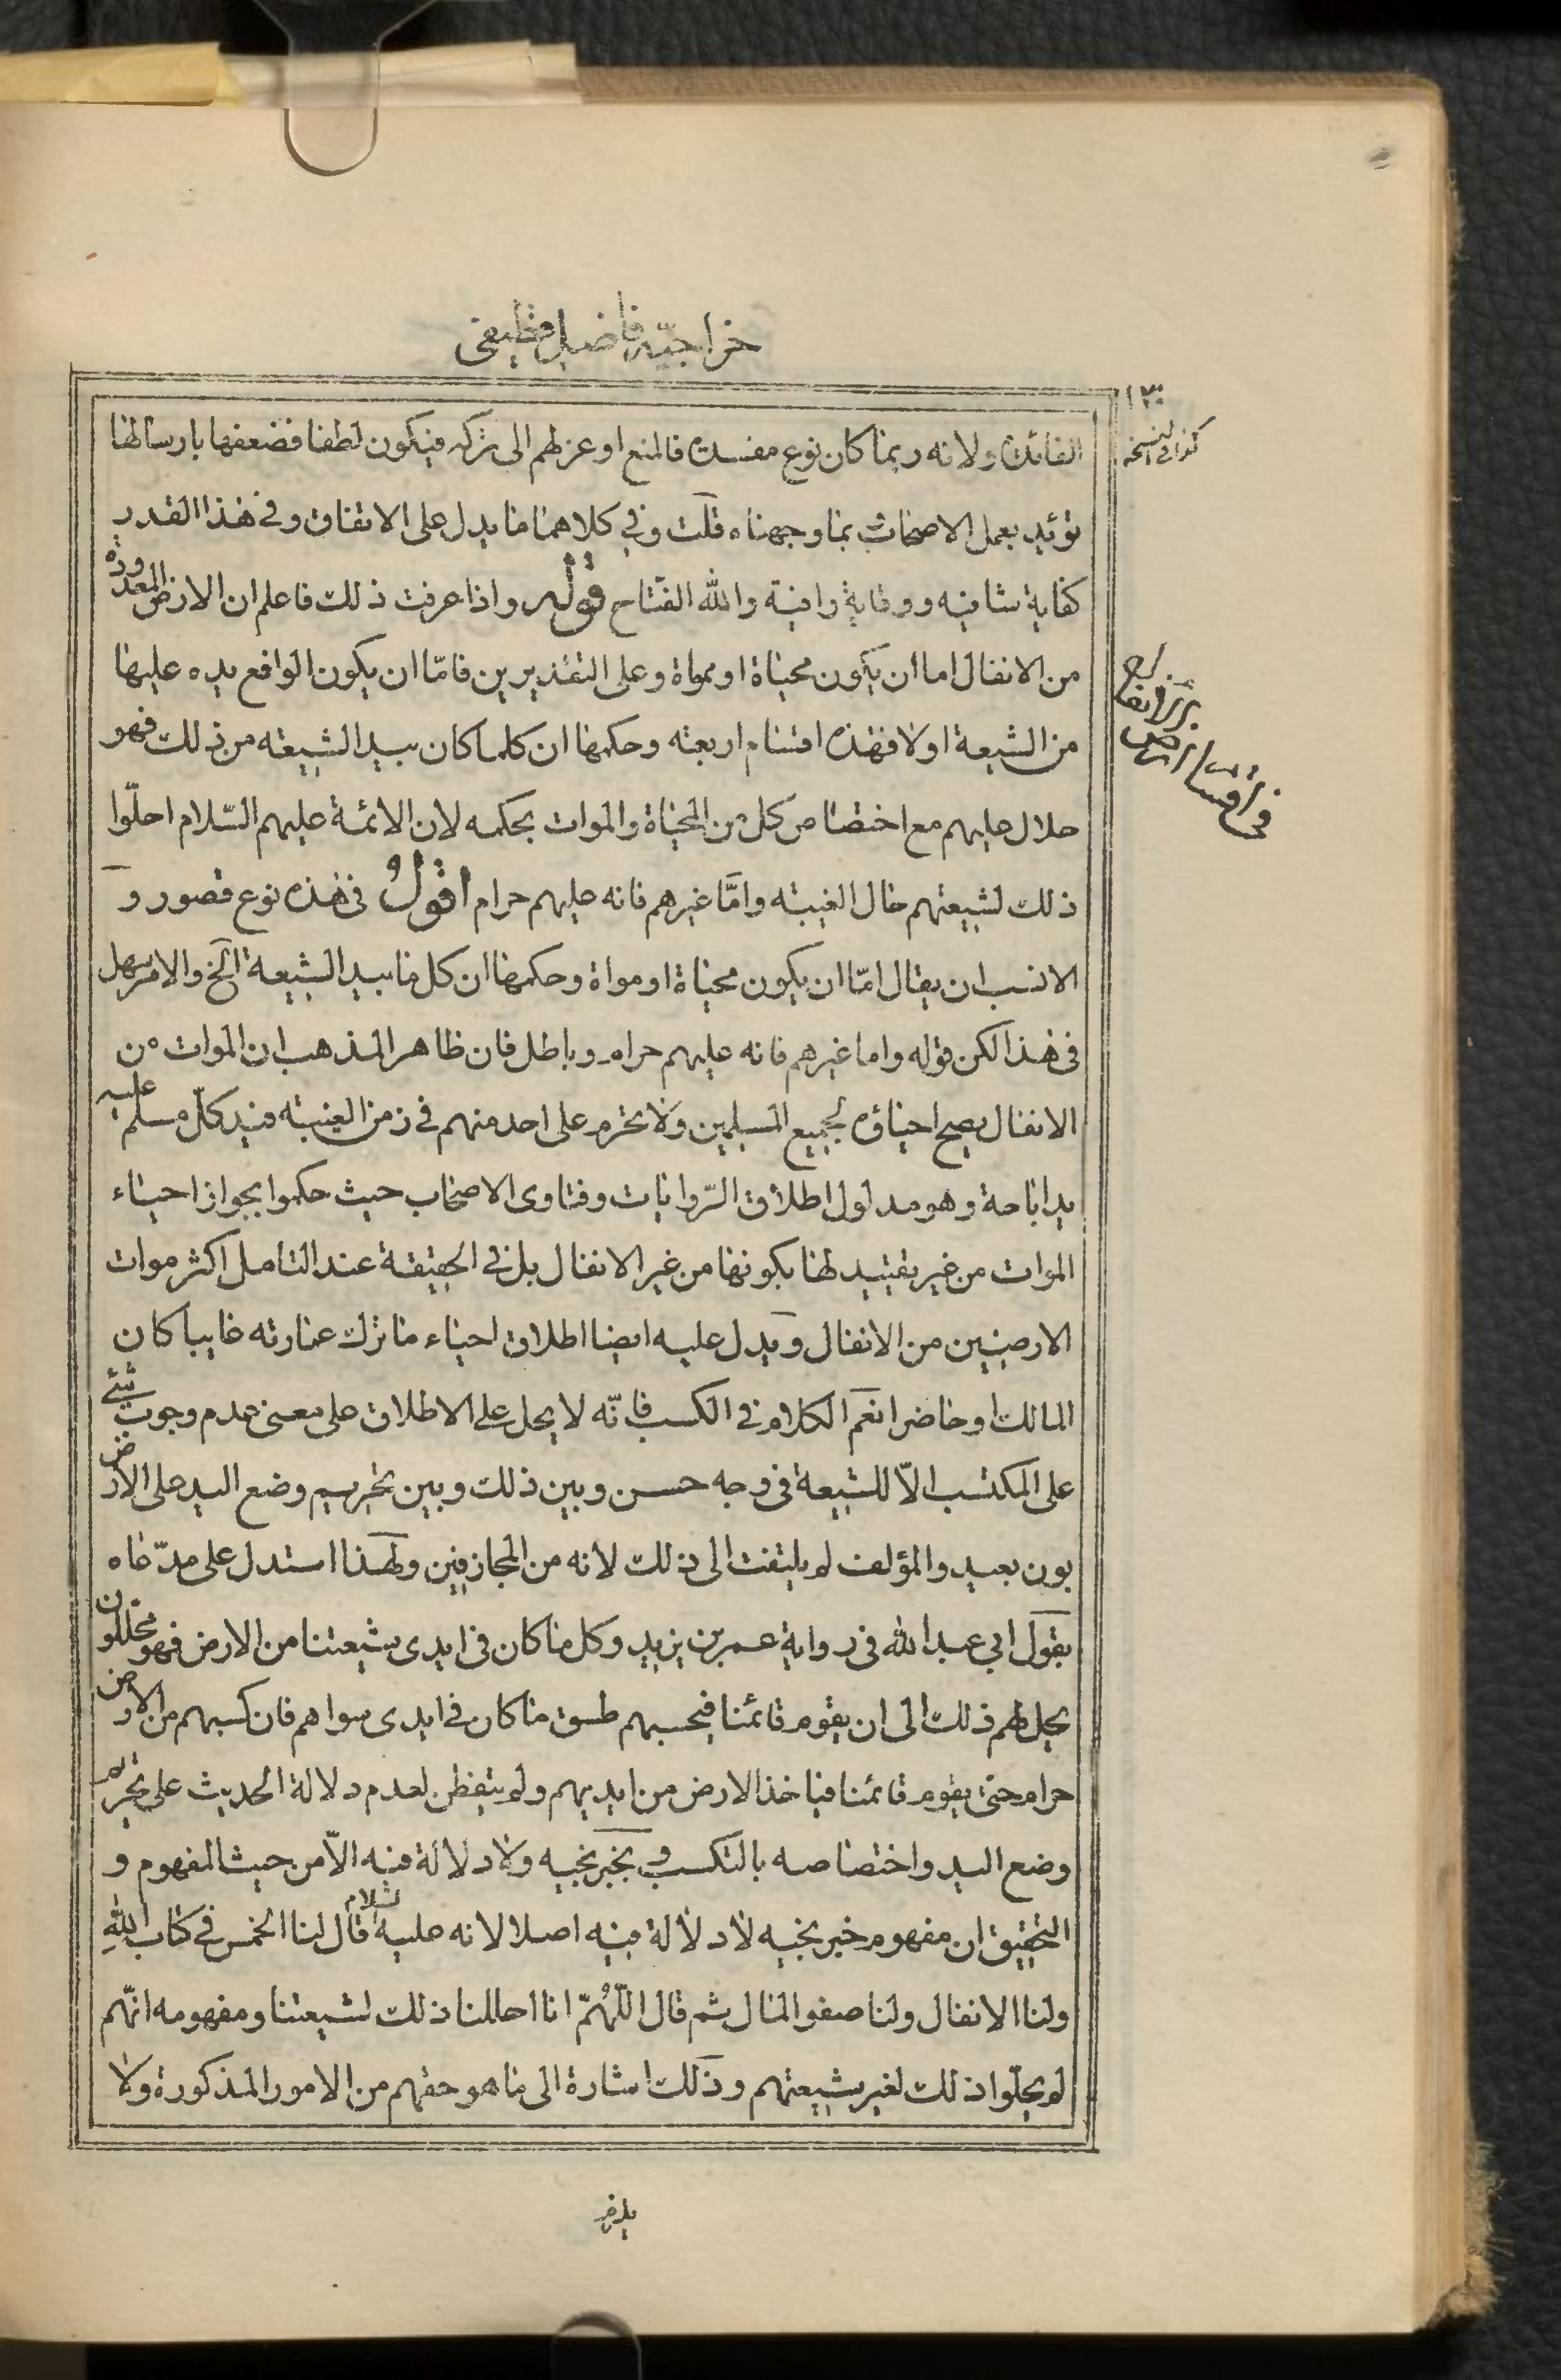 خراجیّه فاضل قطیفی
۱۳۰
كذا فی النسخة
الفائدة ولانه ربما كان نوع مفسدة فالمنع او عزلهم الى تركه فيكون لطفا فضعفها بارسالها
تؤيد بعمل الاصحاب بما وجهناه قلت وفي كلاهما ما يدل على الاتفاق وفي هذا القدر
كفاية شافيه ووقاية وافية والله الفتاح قوله واذا عرفت ذلك فاعلم ان الارض المعدودة
من الانفال اما ان يكون محياة او مواة وعلى التقديرين فامّا ان يكون الواقع يده عليها
من الشيعة اولا فهذه اقسام اربعته وحكمها ان كلما كان بيد الشيعته من ذلك فهو
فی اقسام ارض
حلال عليهم مع اختصاص كل من المحياة والموات بحكمه لان الائمة عليهم السّلام احلّوا
ذلك لشيعتهم حال الغيبته وامّا غيرهم فانه عليهم حرام اقول فى هذه نوع قصور و
الانسب ان يقال امّا ان يكون محياة او مواة وحكمها ان كل ما بيد الشيعة الخ والامر سهل
فى هذا لكن قوله واما غيرهم فانه عليهم حرام وباطل فان ظاهر المذهب ان الموات من
الانفال يصح احياؤه لجميع المسلمين ولا يحرم على احد منهم فى زمن الغيبته فيد كلّ مسلم عليه
يد اباحة وهو مدلول اطلاق الرّوايات وفتاوى الاصحاب حيث حكموا بجواز احياء
الموات من غير تقييد لها بكونها من غير الانفال بل فى الحقيقة عند التامل اكثر موات
الارضيين من الانفال ويدل عليه ايضا اطلاق احياء ما ترك عمارته غايبا كان
المالك او حاضرا نعم الكلام فى الكسب فانّه لا يحل على الاطلاق على معنى عدم وجوب شئ
على المكتسب الّا للشيعة فى وجه حسن وبين ذلك وبين تحريم وضع اليد على الارض
بون بعيد والمؤلف لم يلتفت الى ذلك لانه من المجازفين ولهذا استدل على مدّعاه
بقول ابي عبد الله فى رواية عمر بن يزيد وكل ما كان فى ايدى شيعتنا من الارض فهو محللون
يحل لهم ذلك الى ان يقوم قائمنا فيحسبهم طسق ما كان فى ايدى سواهم فان كسبهم من الارض
حرام حتى يقوم قائمنا فياخذ الارض من ايديهم ولم يتفطن لعدم دلالة الحديث على تحريم
وضع اليد واختصاصه بالتكسب و بخبر نجيه ولا دلالة فيه الّا من حيث المفهوم و
التحقيق ان مفهوم خبر نجيه لا دلالة فيه اصلا لانه عليه السلام قال لنا الخمس فى كتاب الله
ولنا الانفال ولنا صفو المال ثم قال اللّهُمّ انا احللنا ذلك لشيعتنا ومفهومه انّهم
لم يحلّوا ذلك لغير شيعتهم وذلك اشارة الى ما هو حقهم من الامور المذكورة ولا